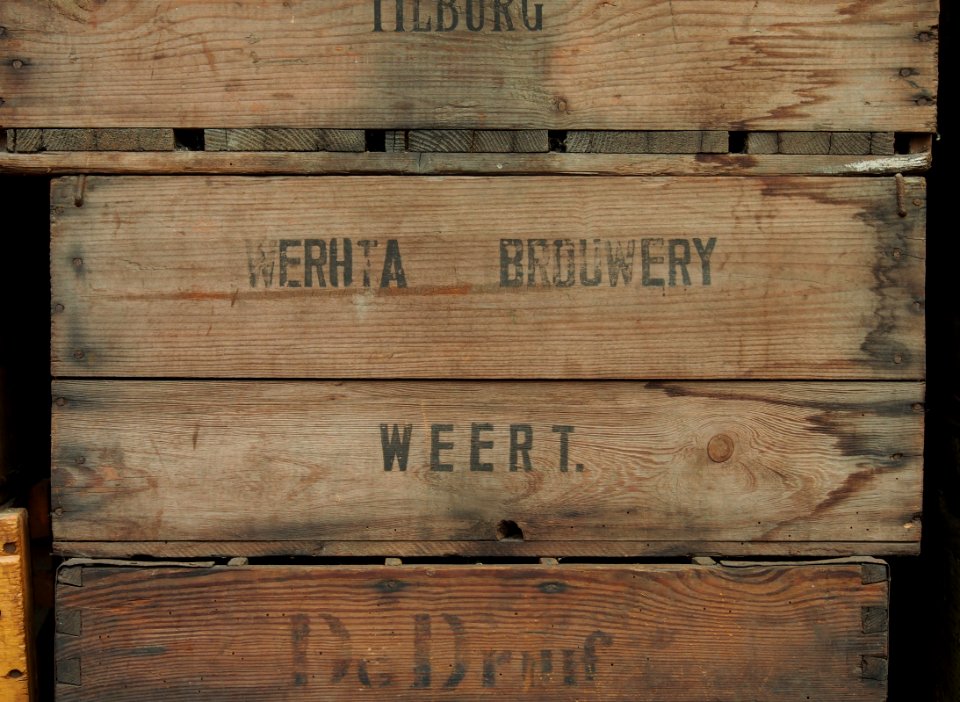 TILBURG
WERHTA BROUWERY
WEERT.
De Druif